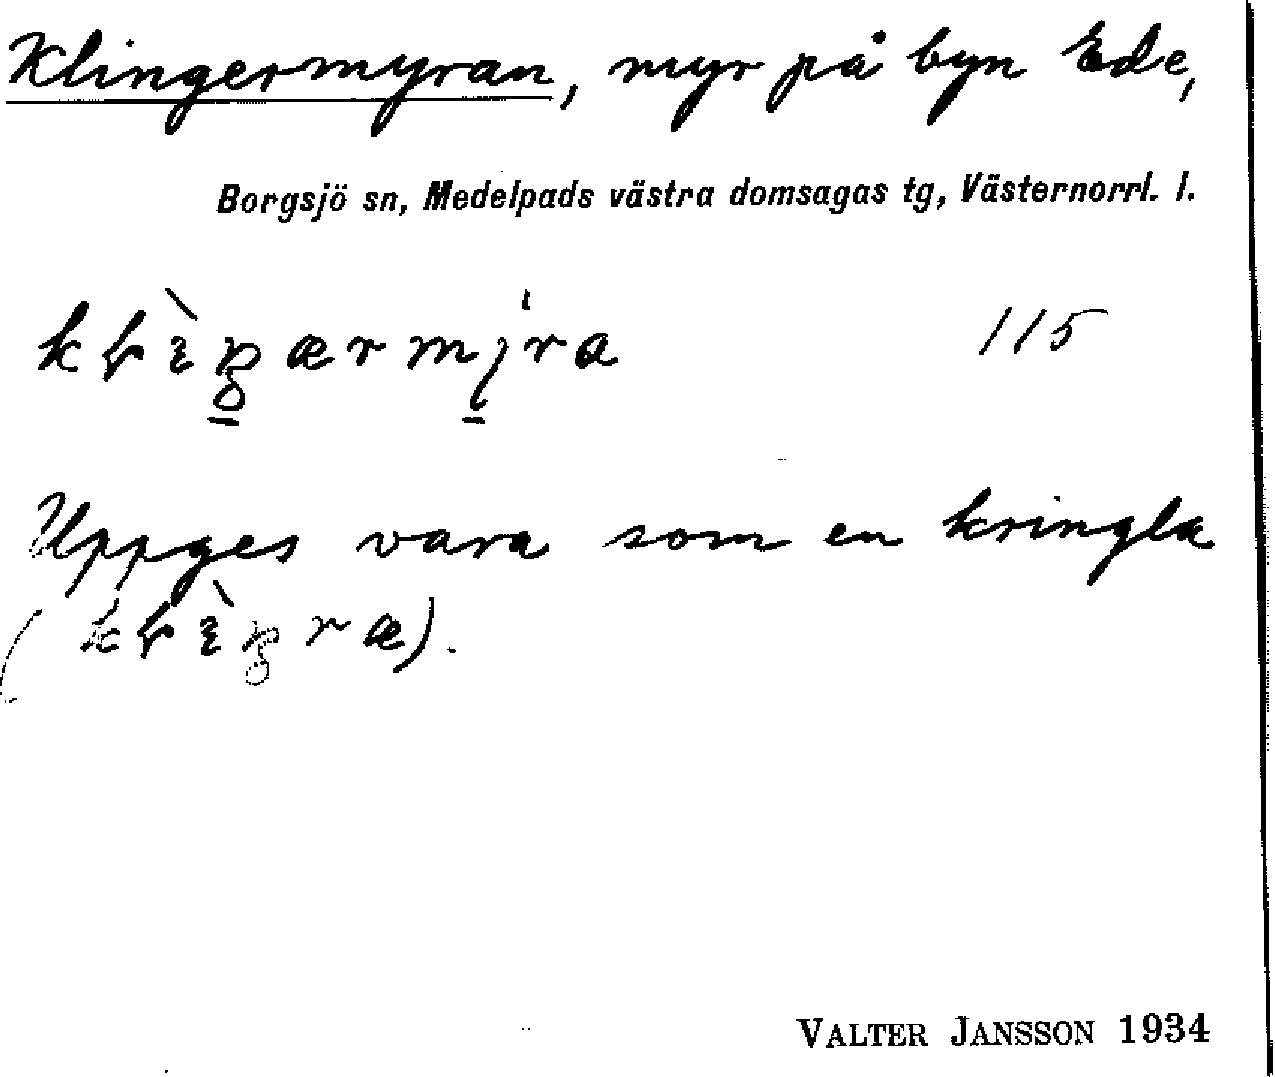 Klingermyran, myr på byn Ede,
Borgsjö sn, Medelpads västra domsagas tg, Västernorrl. l.
115
Uppges vara som en kringla
VALTER JANSSON 1934